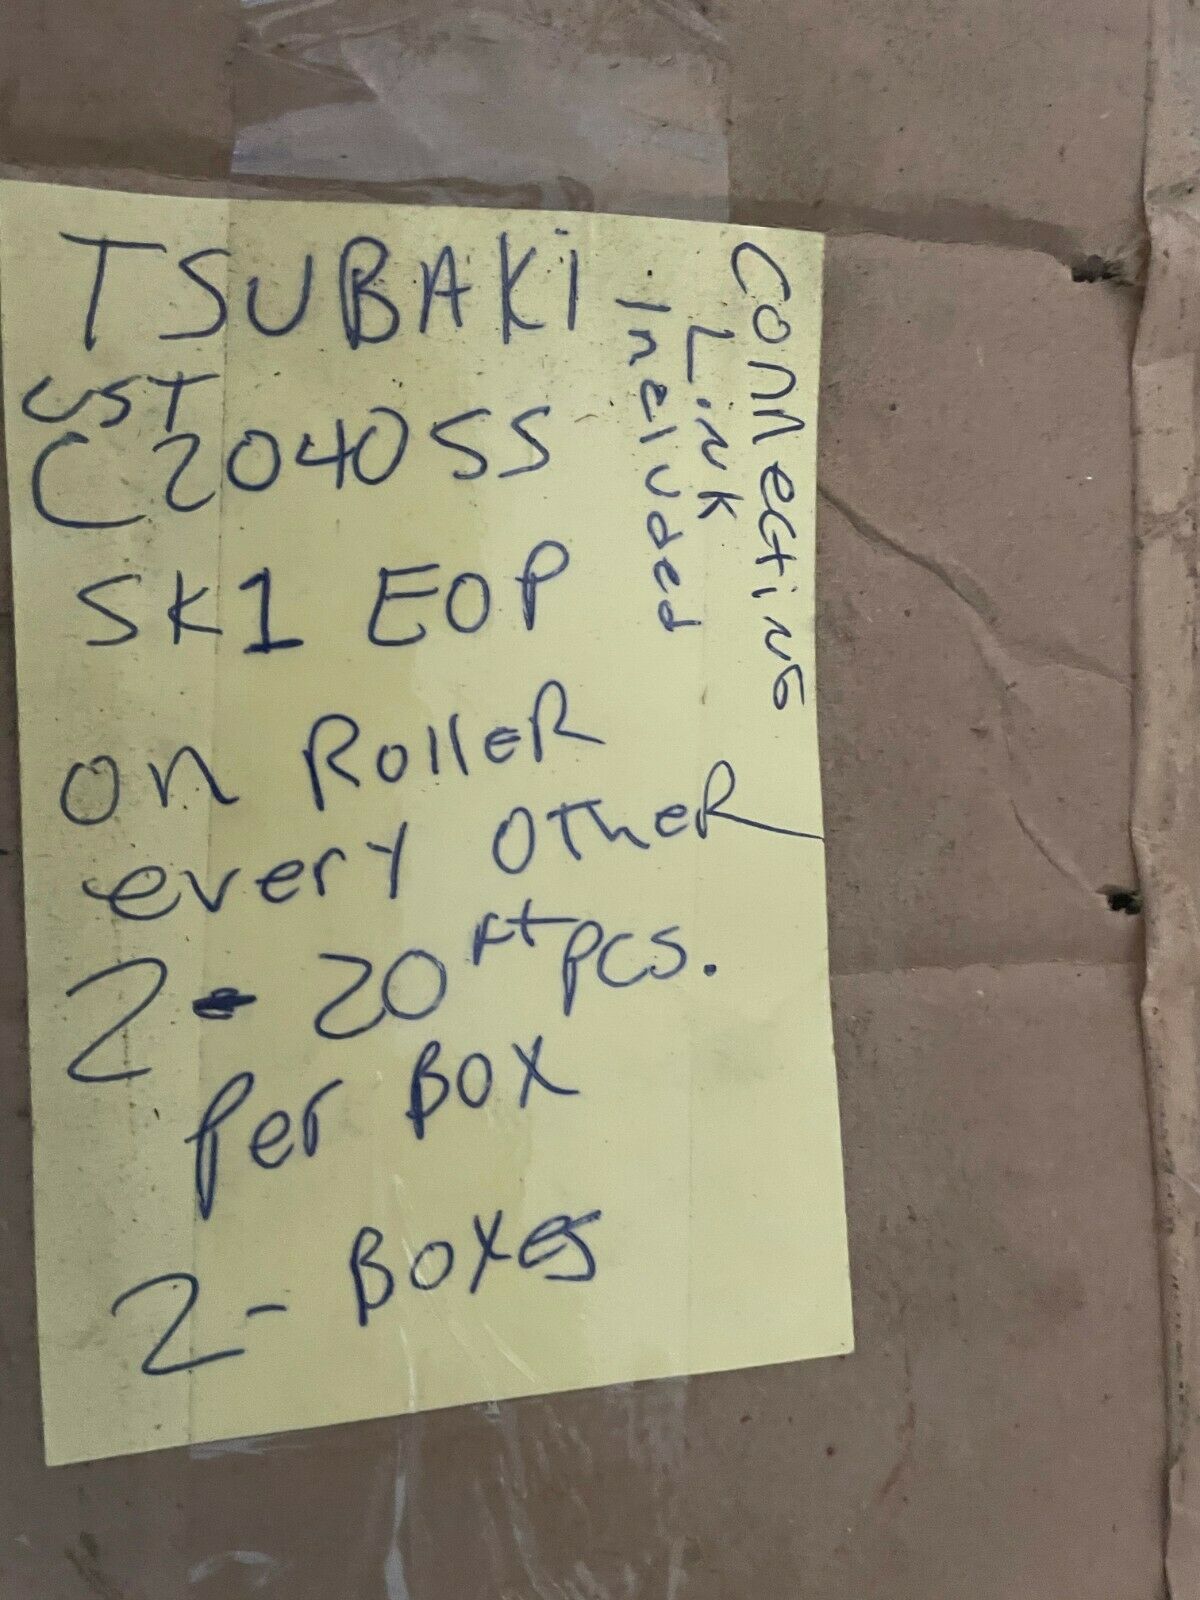 TSUBAKi
UST
C2040SS
SK1 EOP
on RolleR
every OTheR
2 - 20 ft pcs.
Per BOX
2 - BOXes
ConnecTiNG
Link
Included